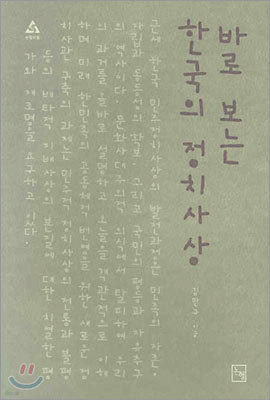 바로 보는
한국의 정치사상
김만규 지음
근세 한국 민주정치사상의 발전과정은 민족의 자존.
자립과 동등성의 확보, 그리고 국민의 평등과 자유추구
의 역사이다. 문화사대주의적 의식에서 탈피하여 우리
의 과거를 올바로 설명하고 오늘을 객관적으로 이해
하며 미래 한민족의 공동체적 번영을 위한 새로운 정
치사관 구축의 과제는 민주적 정치사상의 전통과 불평
등의 배타적 지배사상의 본질에 대한 치열한 평
가와 재조명을 요구하고 있다.
YES24.COM